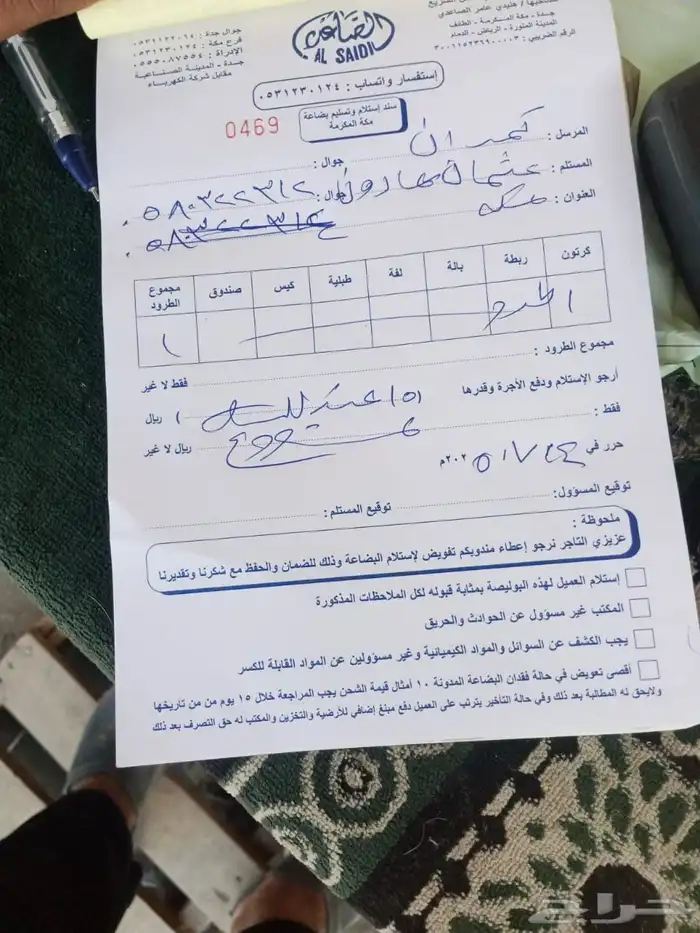 صاحبها / هنيدي عامر الصاعدي
جدة - مكة المكرمة - الطائف
المدينة المنورة - الرياض - الدمام
الصاعدي
AL SAIDI
فرع مكة : ٠٥٣١٢٣٠١٢٤
الإدراة : ٠٥٥٥٠٨٧٥٥٤
جدة - المدينة الصناعية
مقابل شركة الكهرباء
إستفسار واتساب : ٠٥٣١٢٣٠١٢٤
سند إستلام وتسليم بضاعة
مكة المكرمة
0469
المرسل : كمدان جوال :
المستلم : عثمان هارون جوال : ٠٥٨٠٣٢٢٣١٢
العنوان : مكه
كرتون ربطة بالة لفة طبلية كيس صندوق مجموع الطرود
١ طرد ١
مجموع الطرود : فقط لا غير
أرجو الإستلام ودفع الأجرة وقدرها ريال
فقط : ريال لا غير
حرر في ٢٠٢٥م
توقيع المسؤول : توقيع المستلم :
ملحوظة :
عزيزي التاجر نرجو إعطاء مندوبكم تفويض لإستلام البضاعة وذلك للضمان والحفظ مع شكرنا وتقديرنا
إستلام العميل لهذه البوليصة بمثابة قبوله لكل الملاحظات المذكورة
المكتب غير مسؤول عن الحوادث والحريق
يجب الكشف عن السوائل والمواد الكيميائية وغير مسؤولين عن المواد القابلة للكسر
أقصى تعويض في حالة فقدان البضاعة المدونة ١٠ أمثال قيمة الشحن يجب المراجعة خلال ١٥ يوم من من تاريخها
ولايحق له المطالبة بعد ذلك وفي حالة التأخير يترتب على العميل دفع مبنغ إضافي للأرضية والتخزين والمكتب له حق التصرف بعد ذلك
حراج